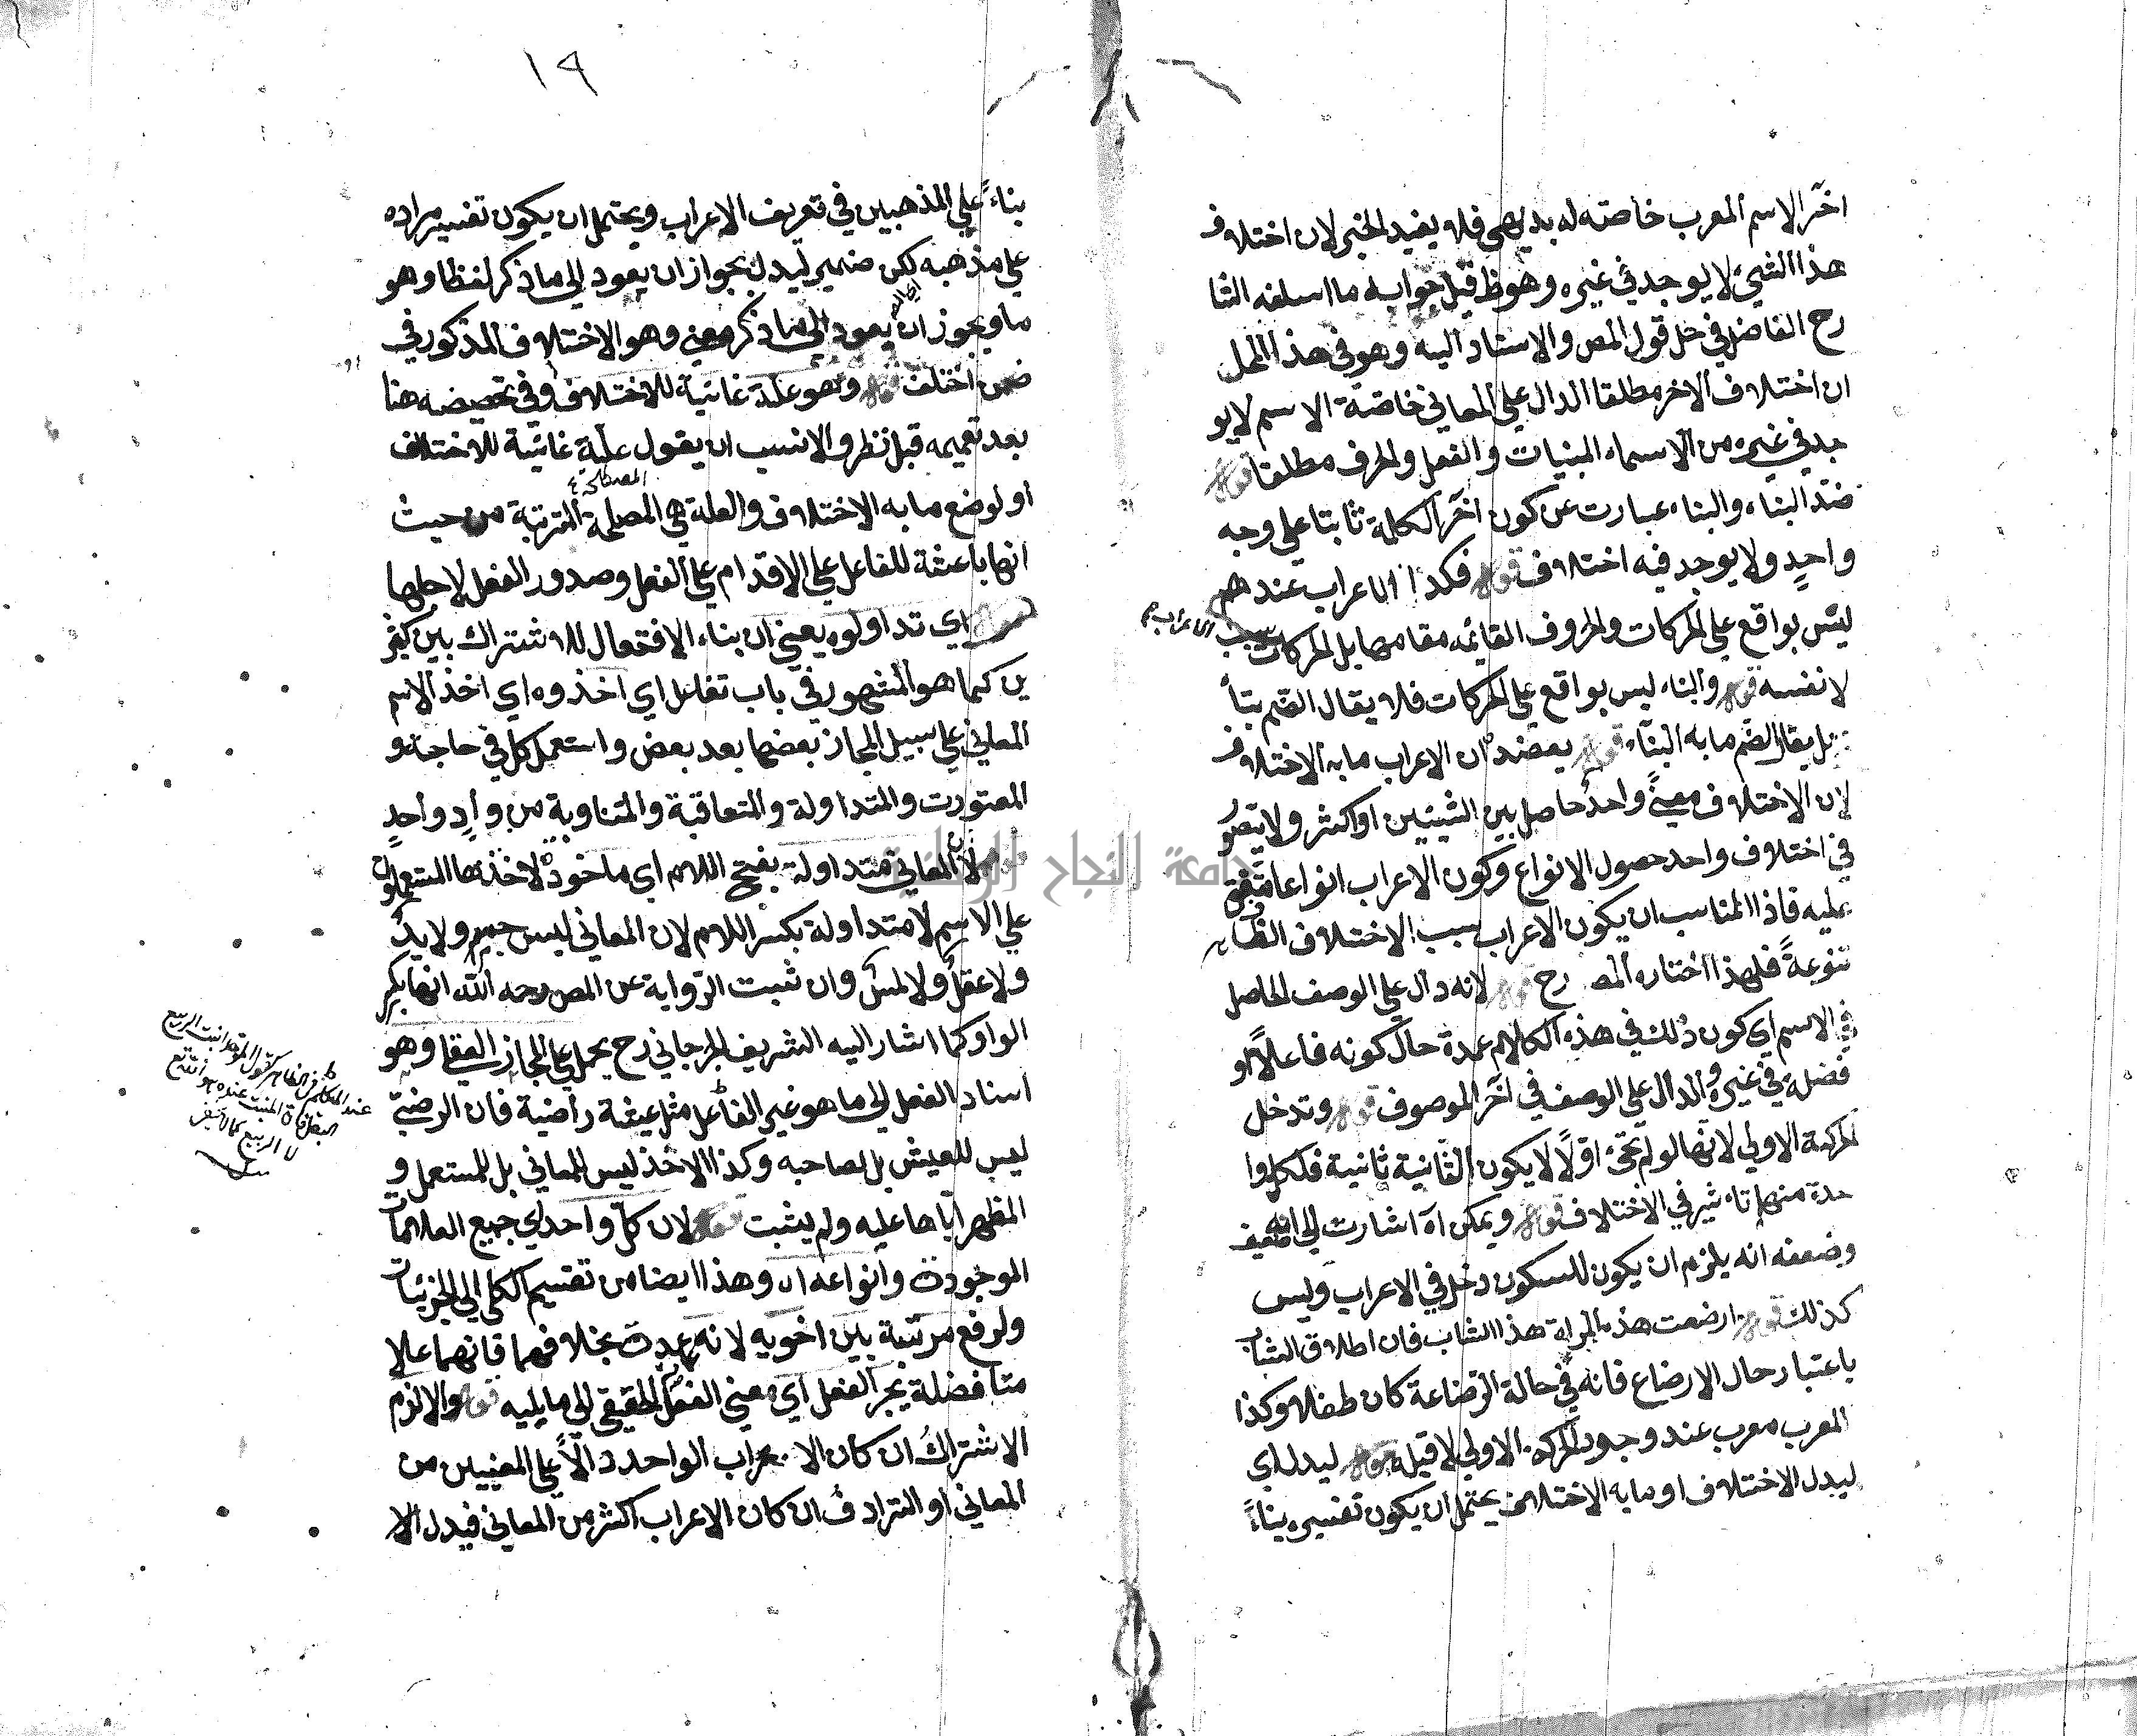 اخر الاسم المعرب خاصته له بديهي فلا يفيد الخبر لان اختلاف
هذا الشيئ لا يوجد في غيره وهو ظ قيل جوابه ما اسلفه الشا
رح الفاضل في حل قول المص والاسناد اليه وهو في هذا المحل
ان اختلاف الاخر مطلقا الدال علي المعاني خاصة الاسم لا يو
جد في غيره من الاسماء المبنيات والفعل والحرف مطلقا قوله
ضد البناء والبناء عبارت عن كون اخر الكلمة ثابتا علي وجه
واحد ولا يوجد فيه اختلاف قوله فكذا الاعراب عندهم
ليس بواقع علي الحركات والحروف القائمه مقامها بل الحركات سبب الاعراب
لا نفسه قوله والبناء ليس بواقع علي الحركات فلا يقال الضم بناً
بل يقال الضم ما به البناء قوله يعضد ان الاعراب ما به الاختلاف
لان الاختلاف معني واحد حاصل بين الشيئين او اكثر ولا يتصور
في اختلاف واحد حصول الانواع وكون الاعراب انواعا متفق
عليه فاذا المناسب ان يكون الاعراب سبب الاختلاف
تنوعةً فلهذا اختاره المص رح قوله لانه دال علي الوصف الحاصل
في الاسم اي كون ذلك في هذه الكلام عمدة حال كونه فاعلاً او
فضلة في غيره والدال علي الوصف في اخر الموصوف قوله وتدخل
الحركة الاولي لانها لو لم تجئ اولاً لا يكون الثانية ثانية فلكل وا
حدة منهما تاءثير في الاختلاف قوله ويمكن اه اشارت الي انه ضعيف
وضعفه انه يلزم ان يكون للسكون دخل في الاعراب وليس
كذلك قوله ارضعت هذه المراة هذا الشاب فان اطلاق الشاب
باعتبار حال الارضاع فانه في حالة الرضاعة كان طفلا وكذا
المعرب معرب عند وجود الحركة الاولي لا قبله قوله ليدل اي
ليدل الاختلاف او ما به الاختلاف يحتمل ان يكون تفسيره بناءً
١٩
بناءً علي المذهبين في تعريف الاعراب ويحتمل ان يكون تفسير مراده
علي مذهبه لكن ضمير ليدل يجواز ان يعود الي ما ذكر لفظا وهو
ما ويجوز ان يعود الي ما ذكر معني وهو الاختلاف المذكور في
ضمن اختلف قوله وهو علة غائية للاختلاف وفي تخصيصه هنا
بعد تعميمه قبل نظر والانسب ان يقول علة غائية للاختلاف
او لوضع ما به الاختلاف والعلة هي المصلحة المترتبة من حيث
انها باعثة للفاعل علي الاقدام علي الفعل وصدور الفعل لاجلها
قوله اي تداولوه يعني ان بناء الافتعال للاشتراك بين كثير
ين كما هو المشهور في باب تفاعل اي اخذوه اي اخذ الاسم
المعاني علي سبيل المجاز بعضها بعد بعض واستعمل كل في حاجة و
المعتورت والمتداولة والمتعاقبة والمتناوبة من واد واحد
لان المعاني متداولة بفتح اللام اي ماخوذة لاخذها المستعملون
علي الاسم لا متداولة بكسر اللام لان المعاني ليس جسم ولا يد
ولا عقل ولا لمس وان ثبت الرواية عن المص رحمه الله انها بكسر
الواو كما اشار اليه الشريف الجرجاني رح يحمل علي المجاز العقلي وهو
اسناد الفعل الي ما هو غير الفاعل مثل عيشة راضية فان الرضي
ليس للعيش بل لصاحبه وكذا الاخذ ليس للمعاني بل للمستعمل و
المظهر اياها عليه ولم يثبت قوله لان كل واحد اي جميع العلامات
الموجودة وانواعه اه وهذا ايضا من تقسيم الكلي الي الجزئيات
ولرفع مرتبة بين اخويه لانه عمدة بخلافهما فانهما علا
متا فضلة يجر الفعل اي معني الفعل الحقيقي الي ما يليه قوله والا لزم
الاشتراك ان كان الاعراب الواحد دالاً علي المعنيين من
المعاني او الترادف ان كان الاعراب اكثر من المعاني فيدل الا
عند المتكلم في الظاهر كقول الموحد انبت الربيع
البقل فان المنبت عنده هو الله تع
لا الربيع
جامعة النجاح الوطنية